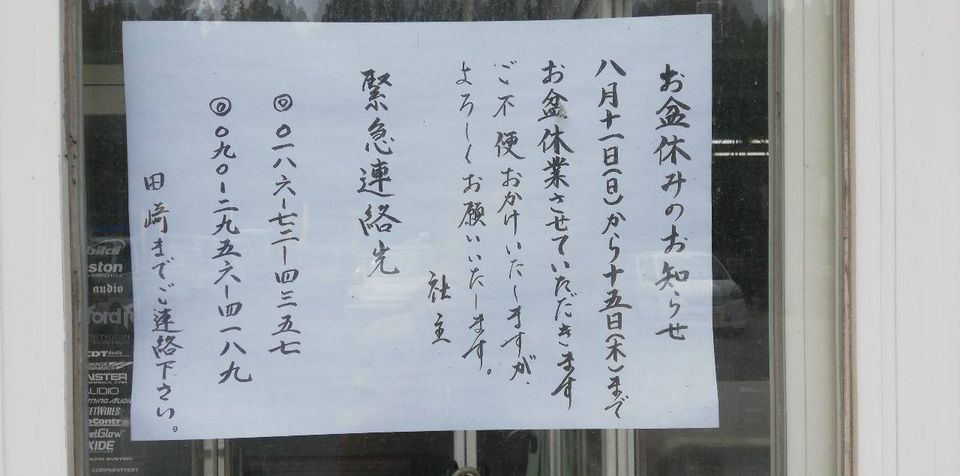 お盆休みのお知らせ
八月十一日(日)から十五日(木)まで
お盆休業させていただきます
ご不便おかけいたしますが、
よろしくお願いいたします。
社主
緊急連絡先
◎〇一八六ー七二ー四三五七
◎〇九〇ー二九五六ー四一八九
田崎までご連絡下さい。
audio
AUDIO